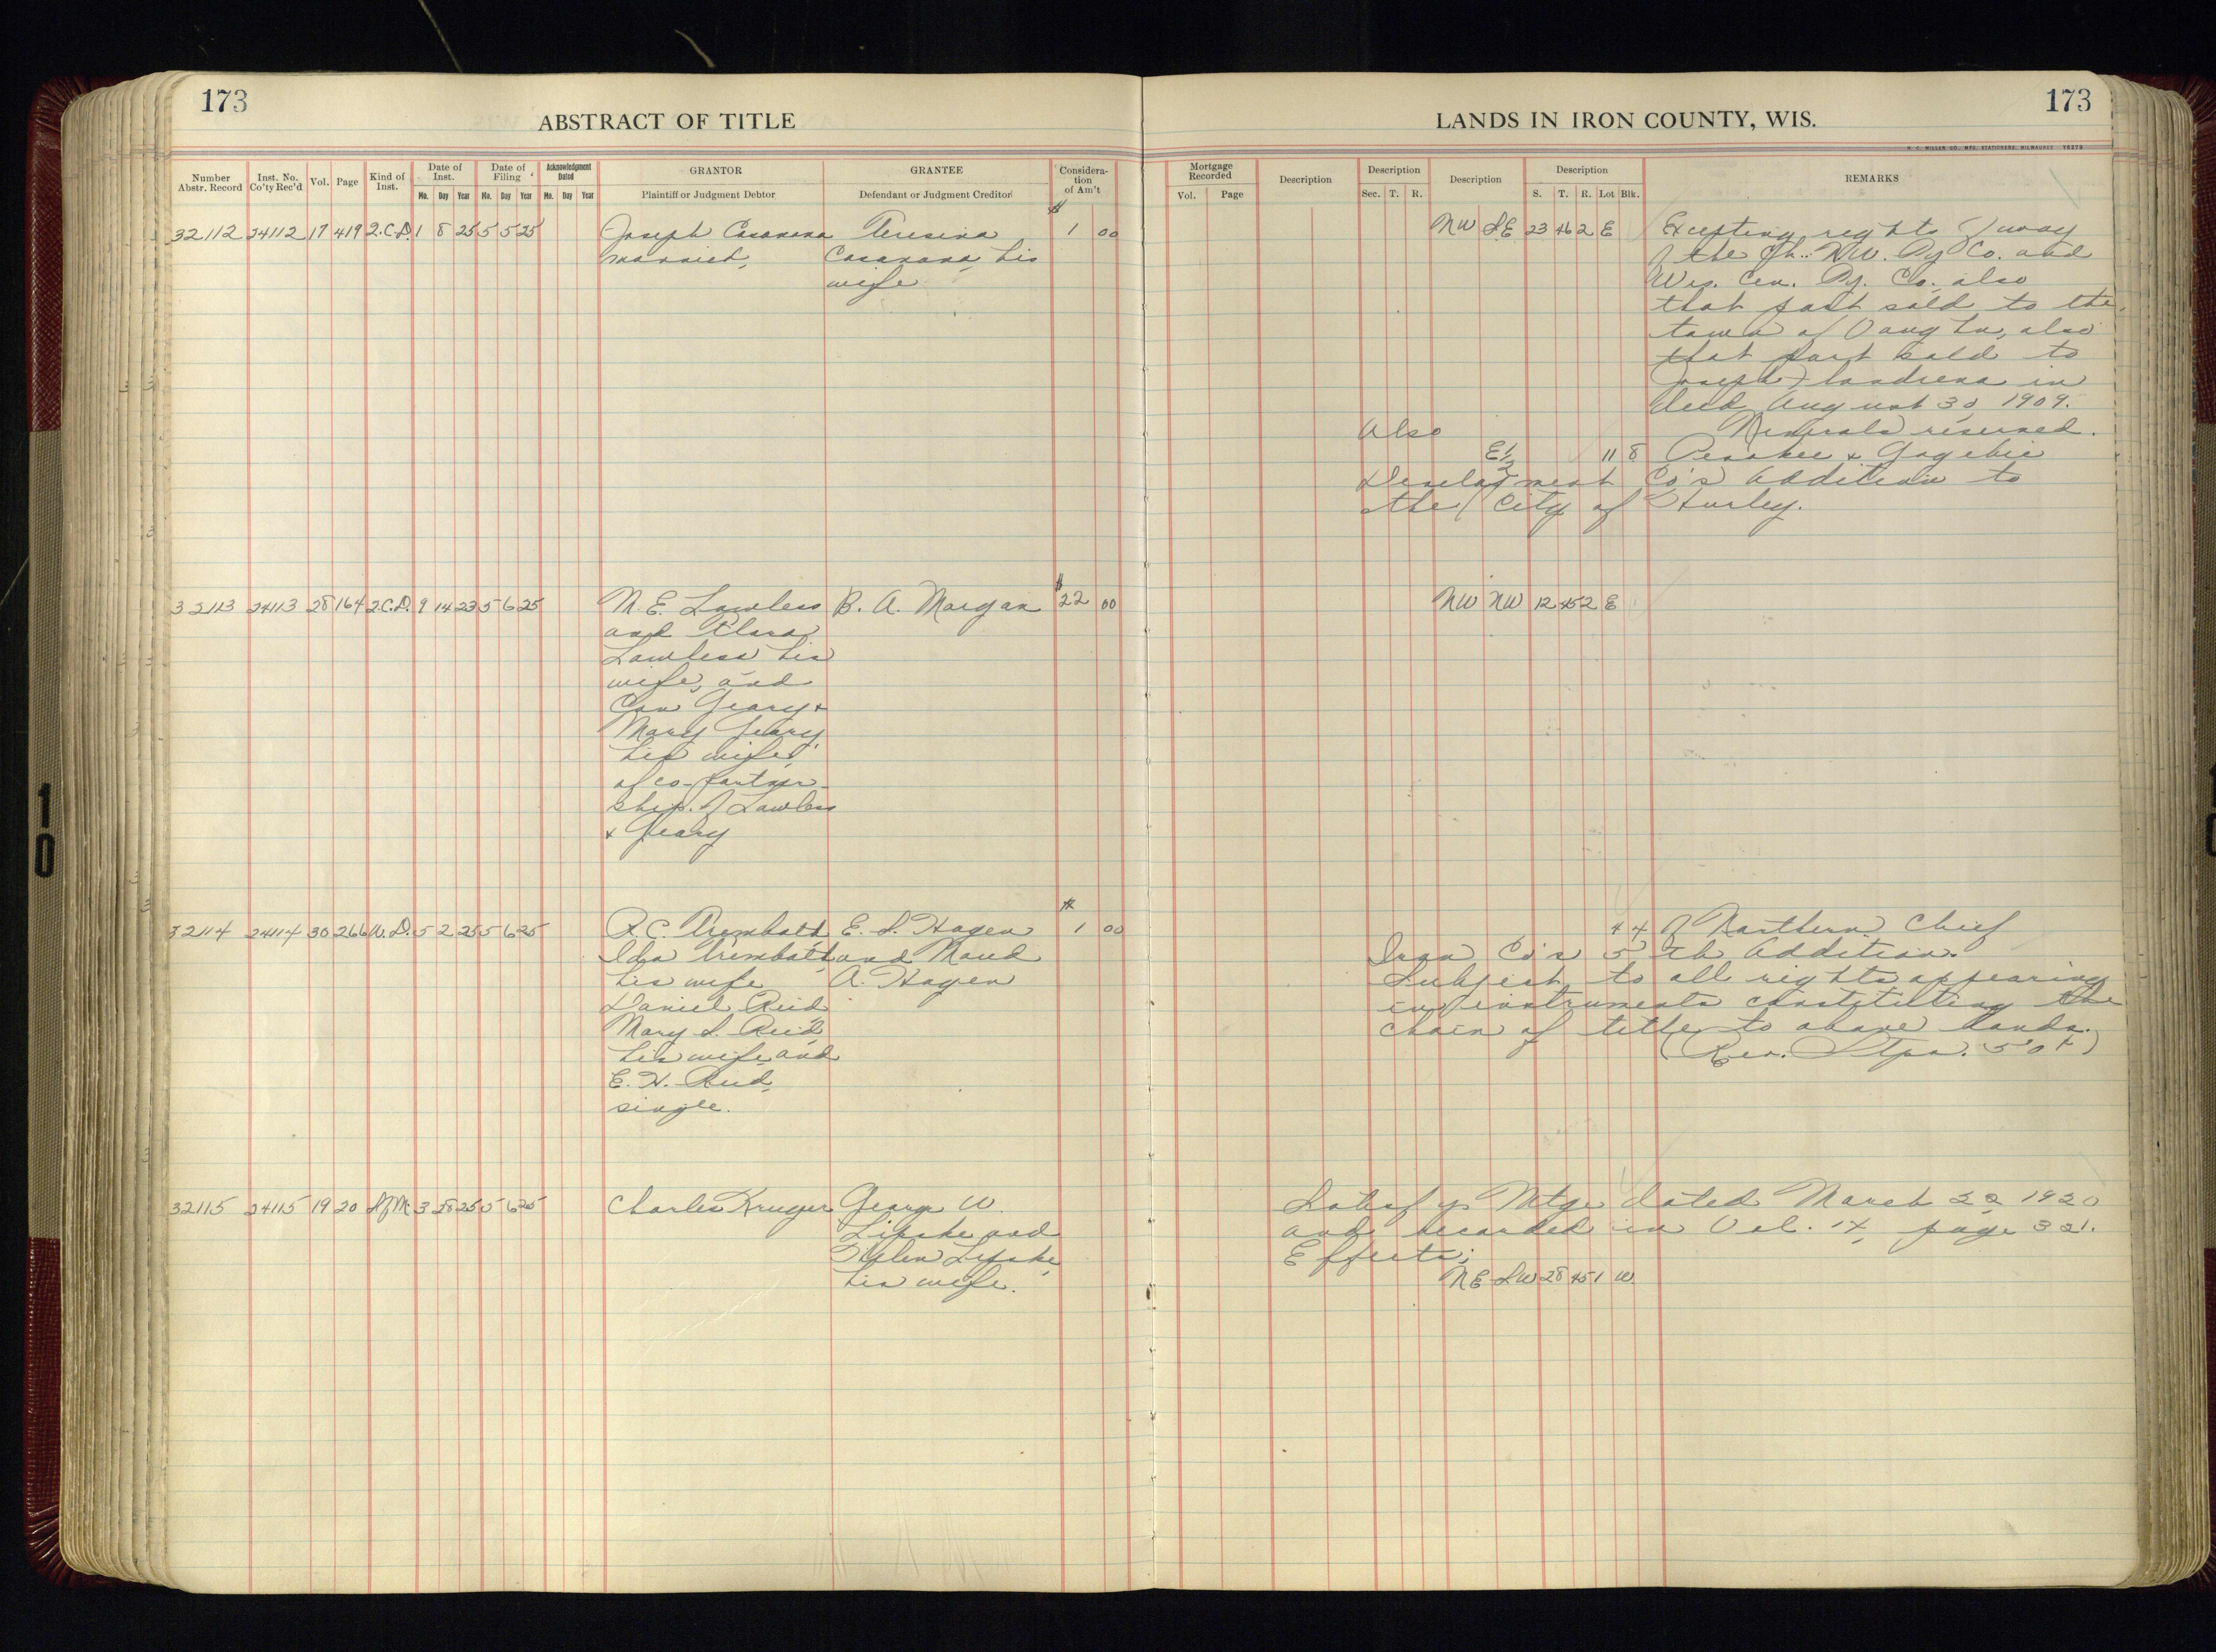 173
ABSTRACT OF TITLE
Number Abstr. Record
Inst. No. Co'ty Rec'd
Vol.
Page
Kind of Inst.
Date of Inst.
Date of Filing
Acknowledgment Dated
GRANTOR
GRANTEE
Consideration of Am't
Mo. Day Year Mo. Day Year Mo. Day Year
Plaintiff or Judgment Debtor
Defendant or Judgment Creditor
32112 24112 17 419 2.C.D. 1 8 25 5 5 25 Joseph Casanova Teresina $1 00
married, Casanova, his
wife
32113 24113 28 164 2.C.D. 9 14 23 5 6 25 M. E. Lawless B. A. Morgan $22 00
and Clara
Lawless his
wife, and
Con Geary &
Mary Geary,
his wife,
of co-partner-
ship. of Lawless
& Geary
32114 24114 30 266 W.D. 5 2 25 5 6 25 R. C. Trembath, E. S. Hagen $1 00
Ida Trembath, and Maud
his wife A. Hagen
Daniel Reid
Mary S. Reid,
his wife, and
E. H. Reid,
single.
32115 24115 19 20 S.f.M. 3 28 25 5 6 25 Charles Kruger George W.
Lipske and
Helen Lipske,
his wife.
173
LANDS IN IRON COUNTY, WIS.
H. C. MILLER CO., MFG. STATIONERS, MILWAUKEE
Mortgage Recorded
Description
Description
Description
Description
REMARKS
Vol. Page
Sec. T. R.
S. T. R. Lot Blk.
NW SE 23 46 2 E Excepting rights of way
of the Ch. & N.W. Ry Co. and
Wis. Cen. Ry. Co., also
that part sold to the
town of Vaughn, also
that part sold to
Joseph in
deed August 30, 1909.
Also Minerals reserved.
E½ 11 8 Penokee & Gogebic
Development Co's Addition to
the City of Hurley.
NW NW 12 45 2 E
4 4 of Northern Chief
Iron Co's 5th Addition.
Subject to all rights appearing
in instruments constituting the
chain of title to above lands.
(Rev. Stps. 50¢)
Satisfys Mtge dated March 22 1920
and recorded in Vol. 14, page 321.
Effects;
NE SW 28 45 1 W.
10